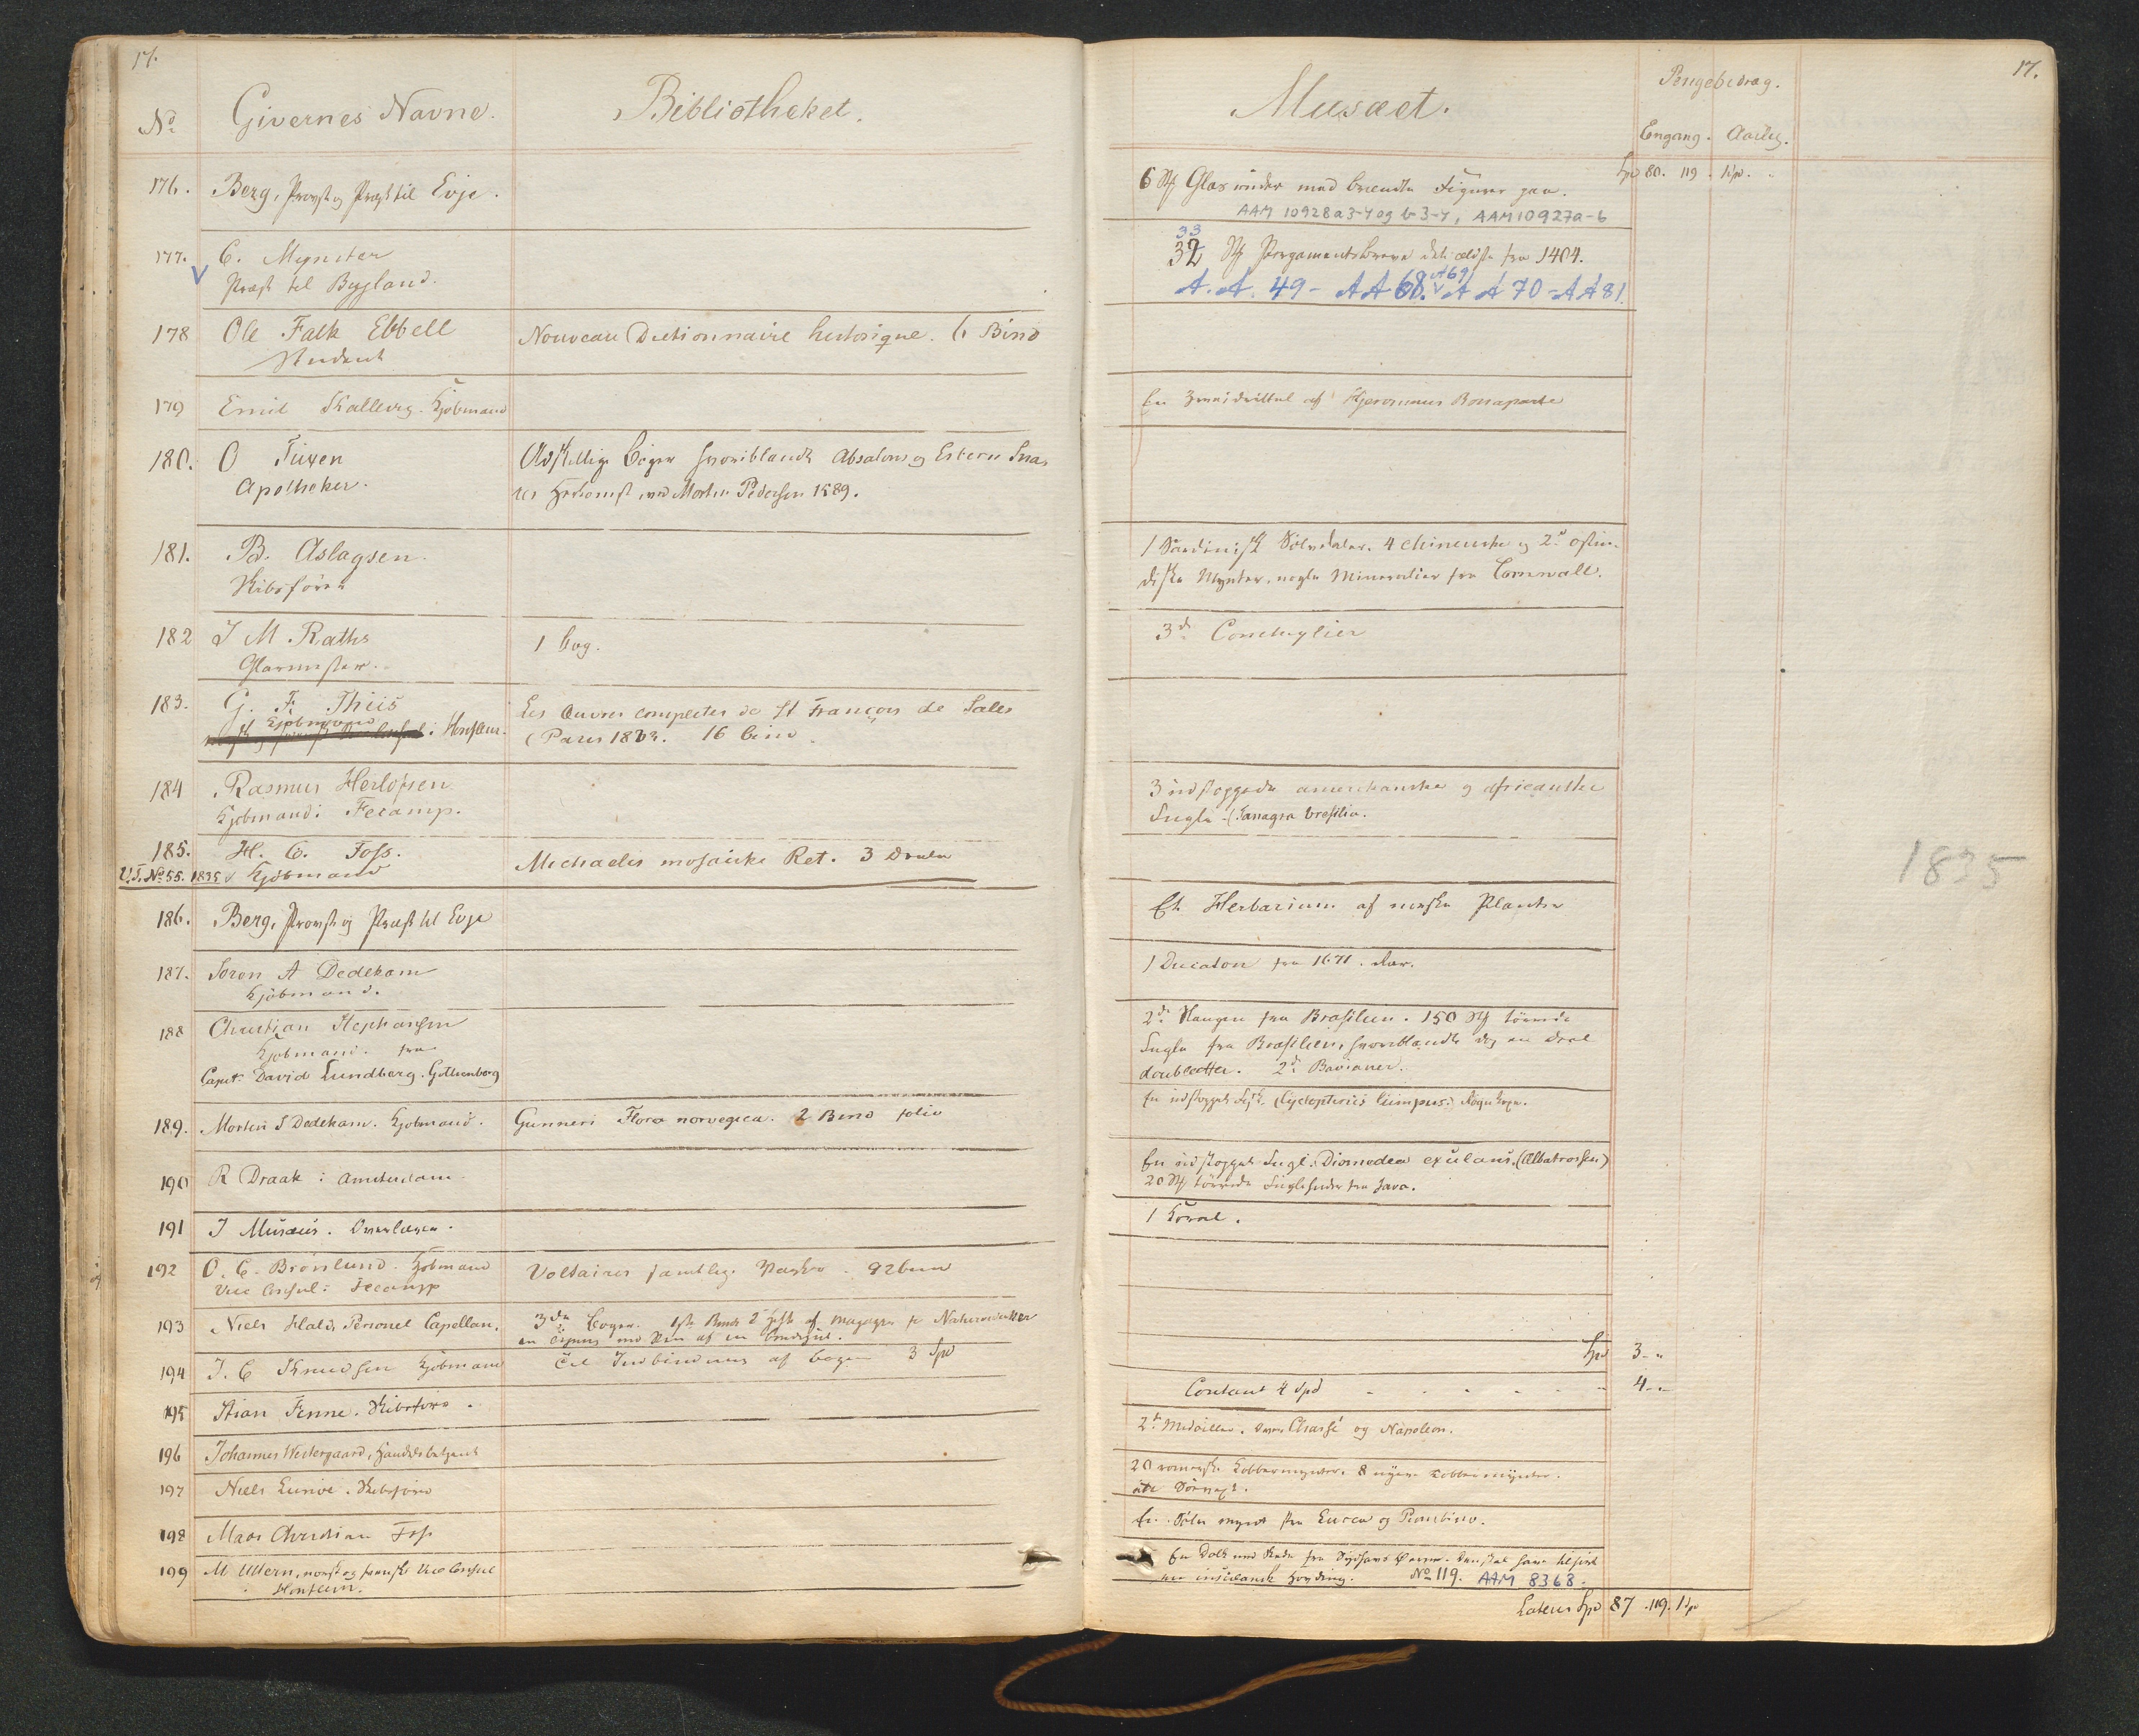 17.
17.
No Givernes Navne. Bibliotheket. Musæet. Pengebidrag.
Engang. Aarlig.
176. Berg, Provst og Præst til Evje. 6 St Glasruder med brændte Figurer paa. Spd 80. 119. 1 Spd.
AAM 10928a3-4 og b3-4, AAM 10927a-b
177. C. Mynster 33
V Præst til Bygland. 32 St Pergamentsbreve det ældste fra 1404.
A.A. 49 - AA 68. v A69 A A 70 - AA 81.
178 Ole Falk Ebbell Nouveau Dictionnaire historique. 6 Bind
Student
179 Emil Kallevig. Kjøbmand En af Hjeronimus Bonaparte
180. O Tuxen Adskillige Bøger hvoriblandt Absalons og Esbern Sna-
Apotheker. res Herkomst, ved Morten Pedersen 1589.
181. B. Aslagsen. 1 Sardinisk Sølvdaler. 4 chinesiske og 2 d ostin-
Skibsfører diske Mynter, nogle Mineralier fra Cornwall.
182 J M. Raths 1 bog. 3 d Conchylier
Glarmester.
183. G. F. Thiis Les Œuvres completes de St François de Sales
Kjøbmand i Honfleur. (Paris 1833. 16 bind.
184 Rasmus Herlofsen 3 udstoppede amerikanske og africanske
Kjøbmand i Fecamp. Fugle. (Tanagra bresilia.
185. H. C. Foss. Michaelis mosaiske Ret. 3 Dele
V.S. No 55. 1835 Kjøbmand
1835
186. Berg, Provst og Præst til Evje Et Herbarium af norske Planter
187. Søren A Dedekam 1 Ducaton fra 1671. rar.
Kjøbmand.
188 Christian Stephansen 2 d Slanger fra Brasilien. 150 St tørrede
Kjøbmand. fra Fugle fra Brasilien, hvoriblandt dog en Deel
Capt. David Lundberg. Gothenborg doubletter. 2 d Bavianer.
189. Morten S Dedekam. Kjøbmand. Gunneri Flora norvegica. 2 Bind folio En udstoppet Fisk (Cyclopterus lumpus. Rognkexe.
190 R Draak i Amsterdam En udstoppet Fugl. Diomedea exulans. (Albatrossen)
20 St tørrede Fuglehuder fra Java.
191 J Musæus. Overlærer. 1 Koral.
192 O. C. Brønlund. Kjøbmand Voltaires samtlige Værker. 92 bind
Vice Consul i Fecamp
193 Niels Hald, Personel Capellan. 3 de Bøger. 1ste Bind 2 Hefte af Magazin for Naturvidensk
Spd 3 - "
194 J. C Knudsen Kjøbmand Til Indbinding af bøger 3 Spd
Contant 4 Spd - - - - - 4 - -
195 Stian Fenne. Skibsfører. 2 d Medailler. Chassé og Napoleon.
196 Johannes Westergaard, Handelsbetjent 20 romerske Kobbermynter. 8 nyere Kobbermynter.
197 Niels Lunde. Skibsfører En Sølvmynt fra Lucca og Piombino.
198 Mads Christian Foss En Dolk med Skede fra Sydhavs Øerne. Den skal have tilhørt
en indiansk Høvding. No 119. AAM 8368.
199 M Ullern, norsk og svensk Vice Consul
i Honfleur.
Lateris Spd 87. 119. 1 Spd